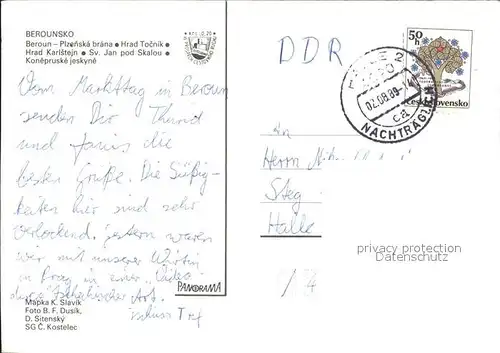 BEROUNSKO
Beroun – Plzeňská brána ● Hrad Točník ●
Hrad Karlštejn ● Sv. Jan pod Skalou ●
Koněpruské jeskyně
Vom Markttag in Beroun
senden Dir
und die
besten Grüße. Die Süßig-
keiten hier sind sehr
verlockend. Gestern waren
wir mit unserer Wirtin
in Prag in einer Video
Art.
Mapka K. Slavík
Foto B. F. Dusík,
D. Sitenský
SG Č. Kostelec
PANORAMA
DDR
50 h
Československo
HALLE 2
02.08.89-14
ca
NACHTRÄGLICH
An
Herrn
Steg
Halle
/ 4
privacy protection
DELCAMPE.NET